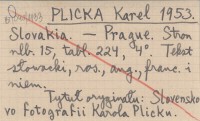 PLICKA Karel 1953.
Slovakia. — Prague. Stron
nlb. 15, tabl. 224, 4°. Tekst
słowacki, ros., ang., franc. i
niem.
Tytuł oryginału: Slovensko
vo fotografii Karola Plicku.